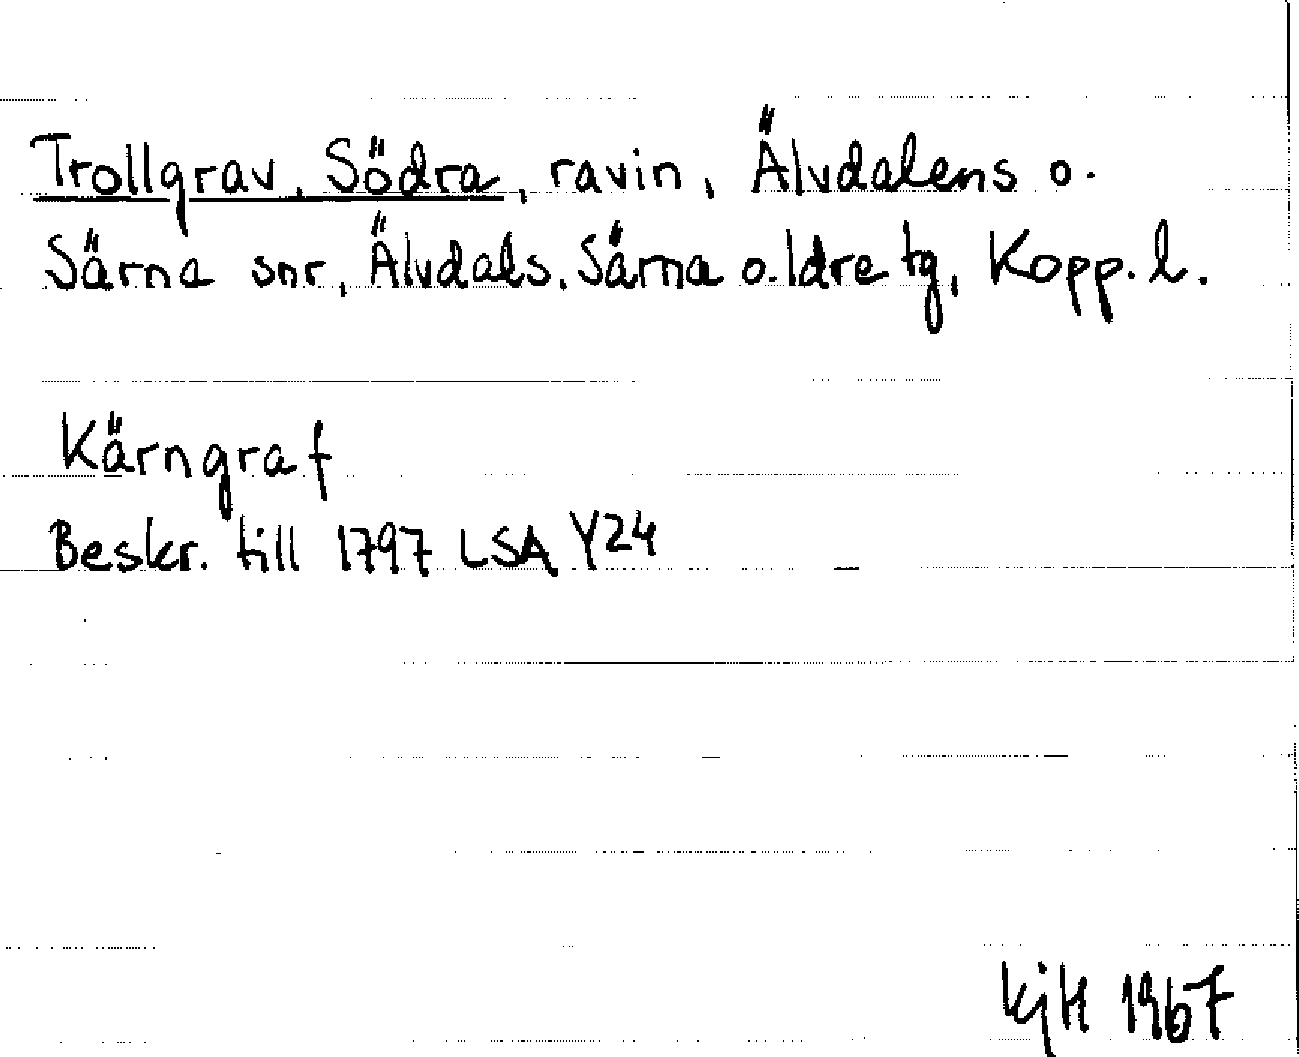 Trollgrav, Södra, ravin, Älvdalens o.
Särna snr, Älvdals, Särna o. Idre tg, Kopp. l.
Kärngraf
Beskr. till 1797 LSA Y24
KjH 1967